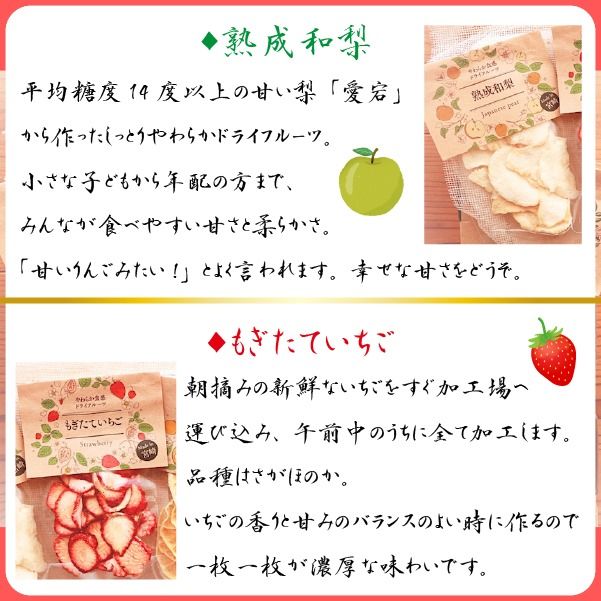 ◆熟成和梨
平均糖度14度以上の甘い梨「愛宕」
から作ったしっとりやわらかドライフルーツ。
小さな子どもから年配の方まで、
みんなが食べやすい甘さと柔らかさ。
「甘いりんごみたい!」とよく言われます。幸せな甘さをどうぞ。
やわらか食感
ドライフルーツ
熟成和梨
Japanese pear
Made in
宮崎
◆もぎたていちご
朝摘みの新鮮ないちごをすぐ加工場へ
運び込み、午前中のうちに全て加工します。
品種はさがほのか。
いちごの香りと甘みのバランスのよい時に作るので
一枚一枚が濃厚な味わいです。
やわらか食感
ドライフルーツ
もぎたていちご
Strawberry
Made in
宮崎